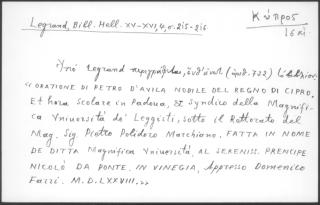 Legrand, Bill. Hell. XV-XVI, 4, σ. 215-216.
Κύπρος
16 αἰ.
Ὑπὸ Legrand περιγράφεται, (ἀριθ. 722)
« ORATIONE DI PETRO D'AVILA NOBILE DEL REGNO DI CIPRO,
Et hora scolare in Padova, & Syndico della Magnifi-
ca Vniversità de' Leggisti, sotto il Rettorato del
Mag. Sig. Pietro Polidoro Marchiano, FATTA IN NOME
DE DITTA Magnifica Vniversità, AL SERENISS. PRENCIPE
NICOLÒ DA PONTE, IN VINEGIA, Appresso Domenico
Farri. M.D.LXXVIII. »